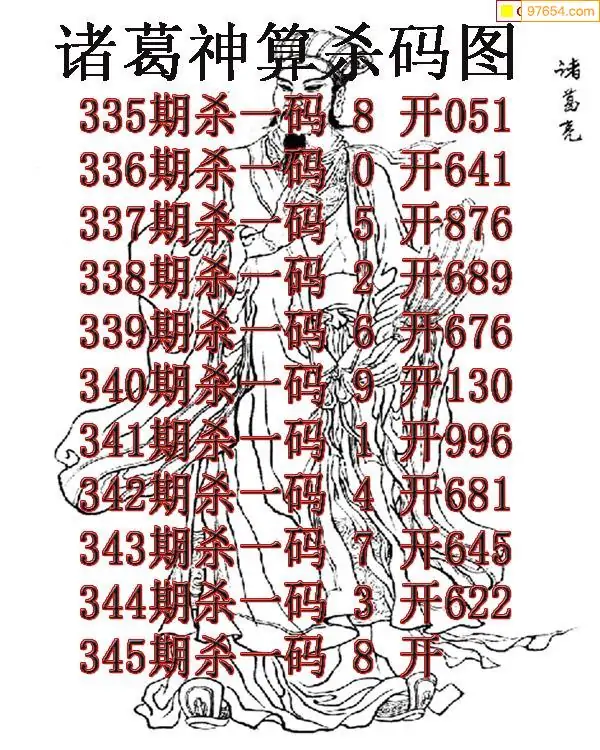 97654.com
诸葛神算杀码图
诸葛亮
335期杀一码 8 开051
336期杀一码 0 开641
337期杀一码 5 开876
338期杀一码 2 开689
339期杀一码 6 开676
340期杀一码 9 开130
341期杀一码 1 开996
342期杀一码 4 开681
343期杀一码 7 开645
344期杀一码 3 开622
345期杀一码 8 开